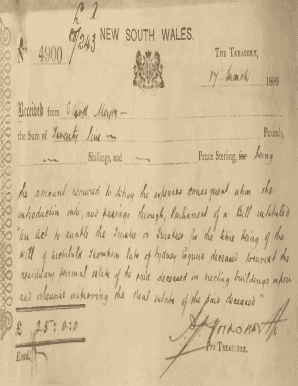 NEW SOUTH WALES.
No. 4900
THE TREASURY,
17 March 1890
Received from Mayer
the Sum of Twenty five Pounds,
Shillings, and Pence Sterling, for being
the amount required to defray the expenses consequent upon the
introduction into, and passage through, Parliament of a Bill intituled
"An act to enable the Trustee or Trustees for the time being of the
Will of Archibald Thompson late of Sydney Esquire deceased to invest the
residuary personal estate of the said deceased in erecting buildings upon
and otherwise improving the Real estate of the said deceased"
£ 25:0:0
Pro TREASURER.